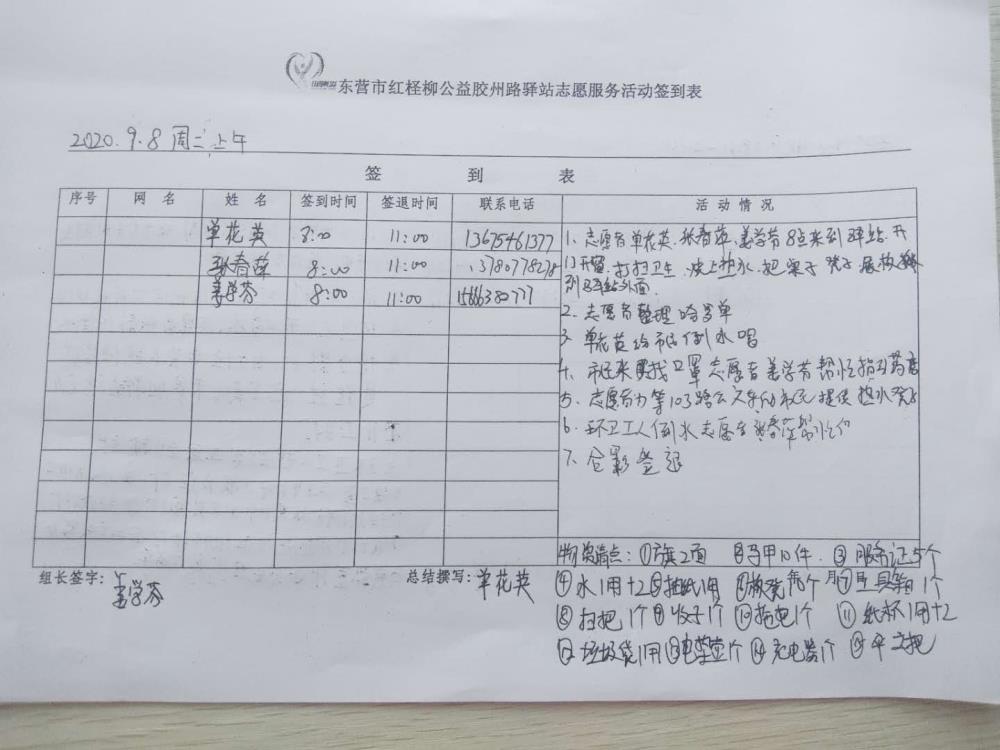 东营市红柽柳公益胶州路驿站志愿服务活动签到表
2020.9.8 周二上午
签 到 表
序号 网 名 姓 名 签到时间 签退时间 联系电话 活 动 情 况
单花英 8:00 11:00 13675461377
张春萍 8:00 11:00 1378077827
姜学芬 8:00 11:00
1、志愿者单花英、张春萍、姜学芬8点来到驿站.开
门开窗、打扫卫生、烧上热水、把桌子 凳子
到驿站外面.
2、志愿者整理
3、单花英给市民倒水喝
4、市民来找口罩志愿者姜学芬帮忙指引药店
5、志愿者为等103路公交车的市民提供热水凳子
6、环卫工人倒水志愿者张春萍帮忙
7、合影签退
物资清点:①旗2面 ②马甲10件. ③服务证5个
④水1用+2 ⑤抽纸1用 ⑦工具箱1个
⑧扫把1个 ⑨收子1个 ⑩拖把1个 ⑪纸杯1用+2
⑫垃圾袋1用 ⑬电 壶1个 ⑭充电器1个 ⑮
组长签字:姜学芬 总结撰写:单花英